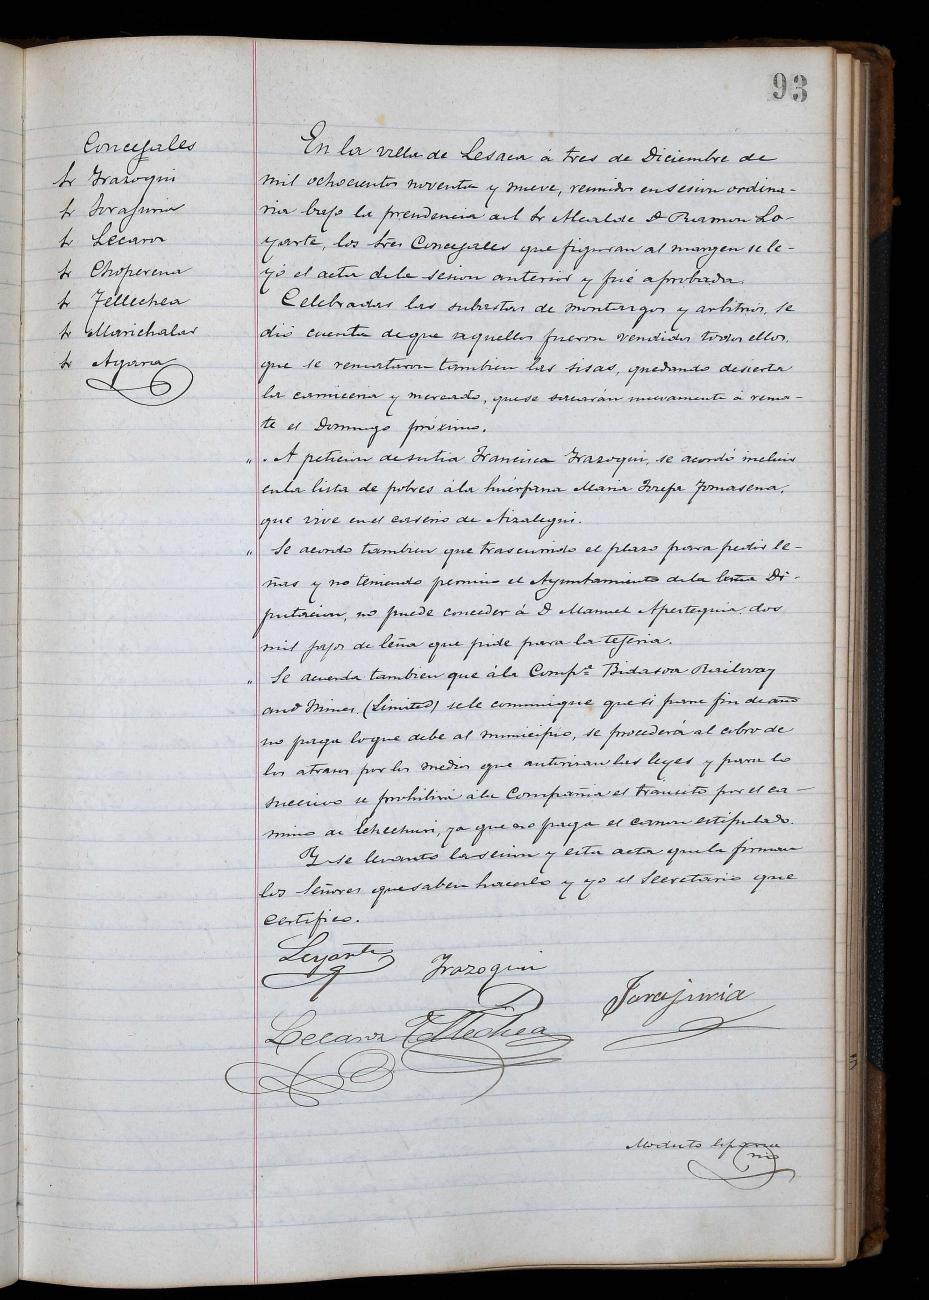 93
Concejales
Sr Irazoqui
Sr Jorajuria
Sr Lecaroz
Sr Choperena
Sr Tellechea
Sr Marichalar
Sr Ayarra
En la villa de Lesaca á tres de Diciembre de
mil ochocientos noventa y nueve, reunidos en sesion ordina-
ria bajo la presidencia del Sr Alcalde D Ramon Lo-
yarte, los Sres Concejales que figuran al margen se le-
yó el acta de la sesion anterior y fué aprobada.
Celebradas las subastas de montazgos y arbitrios, se
dió cuenta de que aquellos fueron vendidos todos ellos,
que se remataron tambien las sisas, quedando desierta
la carniceria y mercado, que se sacarán nuevamente á rema-
te el Domingo próximo.
" . A peticion de su tia Francisca Irazoqui, se acordó incluir
en la lista de pobres á la huérfana Maria Josefa Tomasena,
que vive en el caserio de Aizalegui.
" Se acordo tambien que trascurrido el plazo para pedir le-
ñas y no teniendo permiso el Ayuntamiento de la Excma Di-
putacion, no puede conceder á D Manuel Apesteguia dos
mil fajos de leña que pide para la tejeria.
" Se acuerda tambien que á la Compª Bidasoa Railway
and Mines (Limited) se le comunique que si para fin de año
no paga lo que debe al municipio, se procederá al cobro de
los atrasos por los medios que autorizan las leyes y para lo
sucesivo se prohibirá á la Compañia el transito por el ca-
mino de Echechuri, ya que no paga el canon estipulado.
Y se levanto la sesion y esta acta que la firman
los Señores que saben hacerlo y yo el Secretario que
certifico.
Loyarte Irazoqui
Jorajuria
Lecaroz Tellechea
Modesto